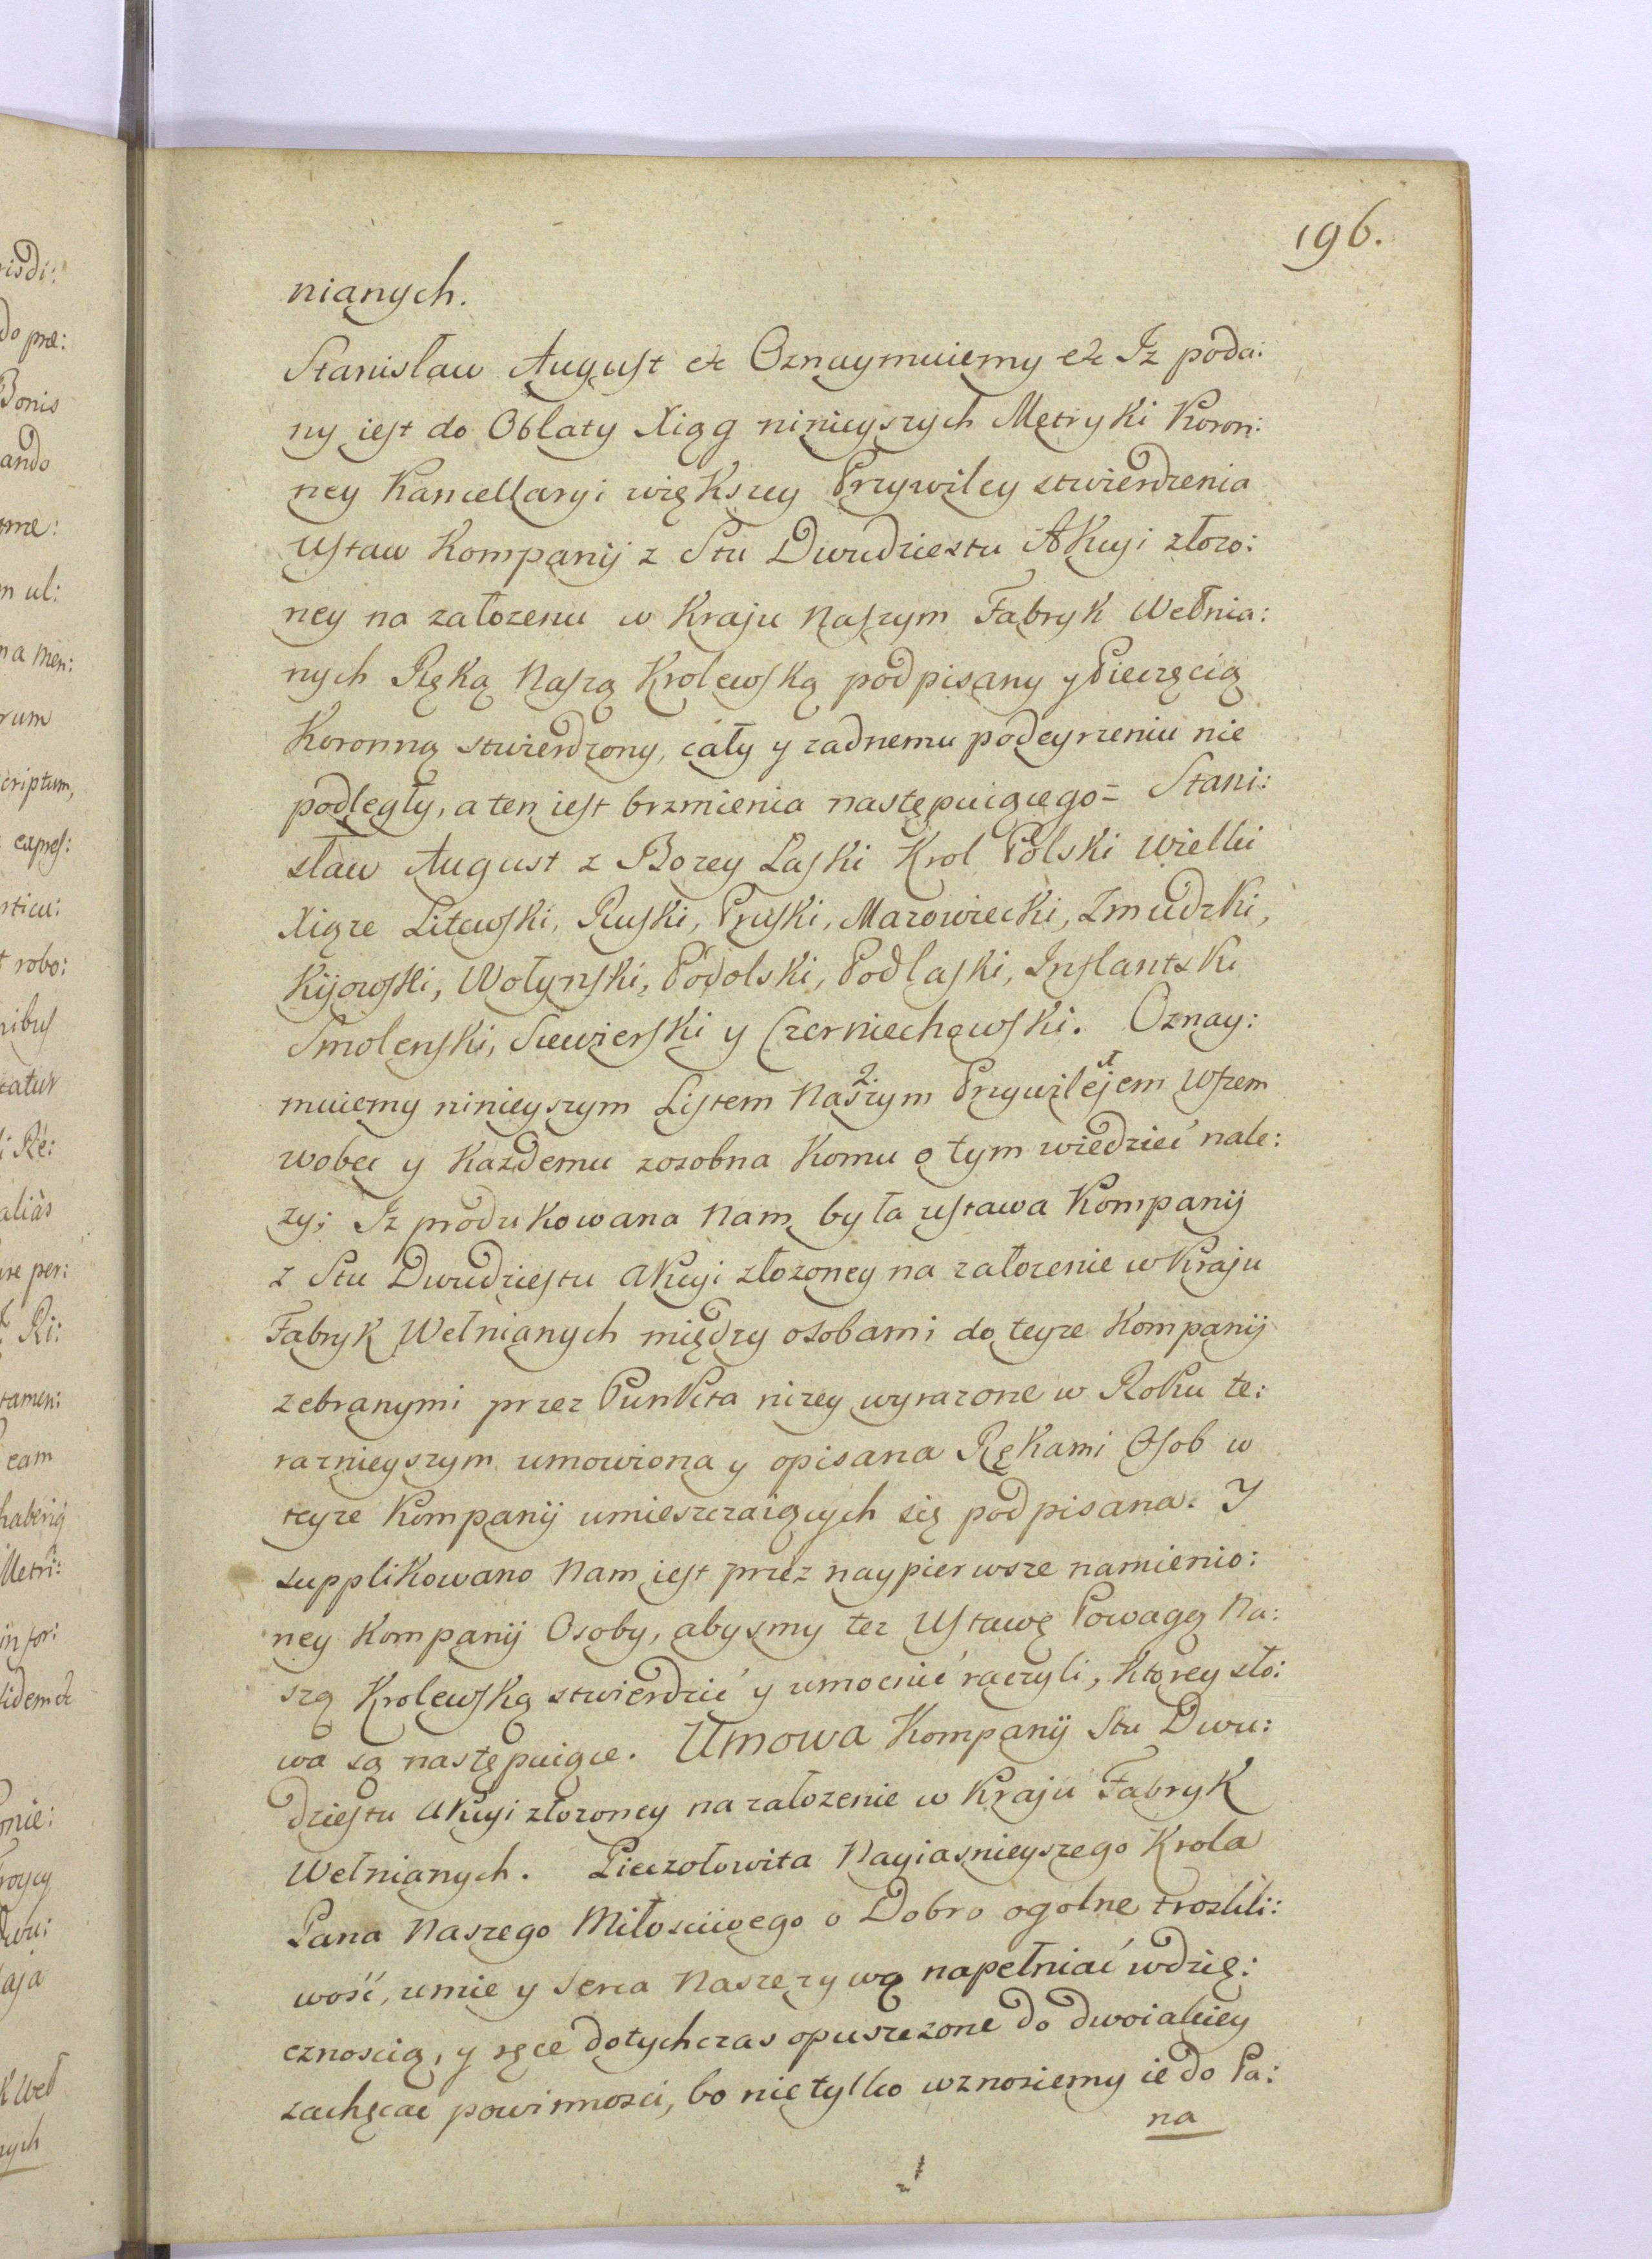 196.
nianych.
Stanisław August &c Oznaymuiemy &c Iz poda:
ny iest do Oblaty Xiąg ninieyszych Metryki Koron:
ney Kancellaryi większey Przywiley stwierdzenia
Ustaw Kompanij z Stu Dwudziestu Akcyi złozo:
ney na załozenu w Kraju Naszym Fabryk Wełnia:
nych Ręką Naszą Krolewską podpisany y Pieczęcią
Koronną stwierdzony, cały y zadnemu podeyrzeniu nie
podległy, a ten iest brzmienia następuiącego = Stani:
sław August z Bozey Laski Krol Polski Wielki
Xiąze Litewski, Ruski, Pruski, Mazowiecki, Zmudzki,
Kijowski, Wołynski, Podolski, Podlaski, Inflantski
Smolenski, Siewierski y Czerniechowski. Oznay:
muiemy ninieyszym Listem Naszym Przywilejem Wszem
wobec y Kazdemu zosobna Komu o tym wiedzieć nale:
zy; Iz produkowana Nam była ustawa Kompanij
z Stu Dwudziestu Akcyi złozoney na załozenie w Kraju
Fabryk Wełnianych między osobami do teyze Kompanij
zebranymi przez Punkta nizey wyrazone w Roku te:
raznieyszym umowiona y opisana Rękami Osob w
teyze Kompanij umieszczaiących się podpisana. Y
supplikowano Nam iest przez naypierwsze namienio:
ney Kompanij Osoby, abysmy tez Ustawę Powagą Na:
szą Krolewską stwierdzić y umocnić raczyli, ktorey sło:
wa są następuiące. Umowa Kompanij Stu Dwu:
dziestu Akcyi złozoney na załozenie w Kraju Fabryk
Wełnianych. Pieczołowita Nayiasnieyszego Krola
Pana Naszego Miłosciwego o Dobro ogolne troskli:
wość, umie y serca Nasze zywą napełniać wdzię:
cznoscią, y ręce dotychczas opuszczone do dwoiakiey
zachęcać powinnosci, bo nie tylko wznosiemy ie do Pa:
na